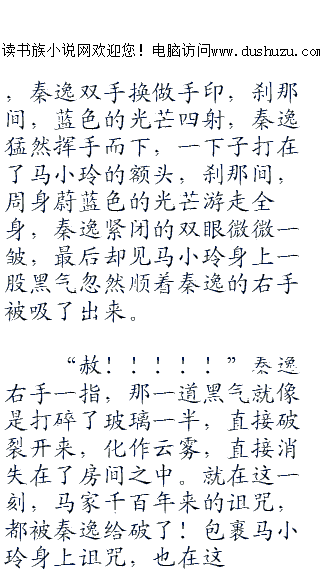 读书族小说网欢迎您！电脑访问www.dushuzu.com
，秦逸双手换做手印，刹那
间，蓝色的光芒四射，秦逸
猛然挥手而下，一下子打在
了马小玲的额头，刹那间，
周身蔚蓝色的光芒游走全
身，秦逸紧闭的双眼微微一
皱，最后却见马小玲身上一
股黑气忽然顺着秦逸的右手
被吸了出来。
“赦！！！！！”秦逸
右手一指，那一道黑气就像
是打碎了玻璃一半，直接破
裂开来，化作云雾，直接消
失在了房间之中。就在这一
刻，马家千百年来的诅咒，
都被秦逸给破了！包裹马小
玲身上诅咒，也在这